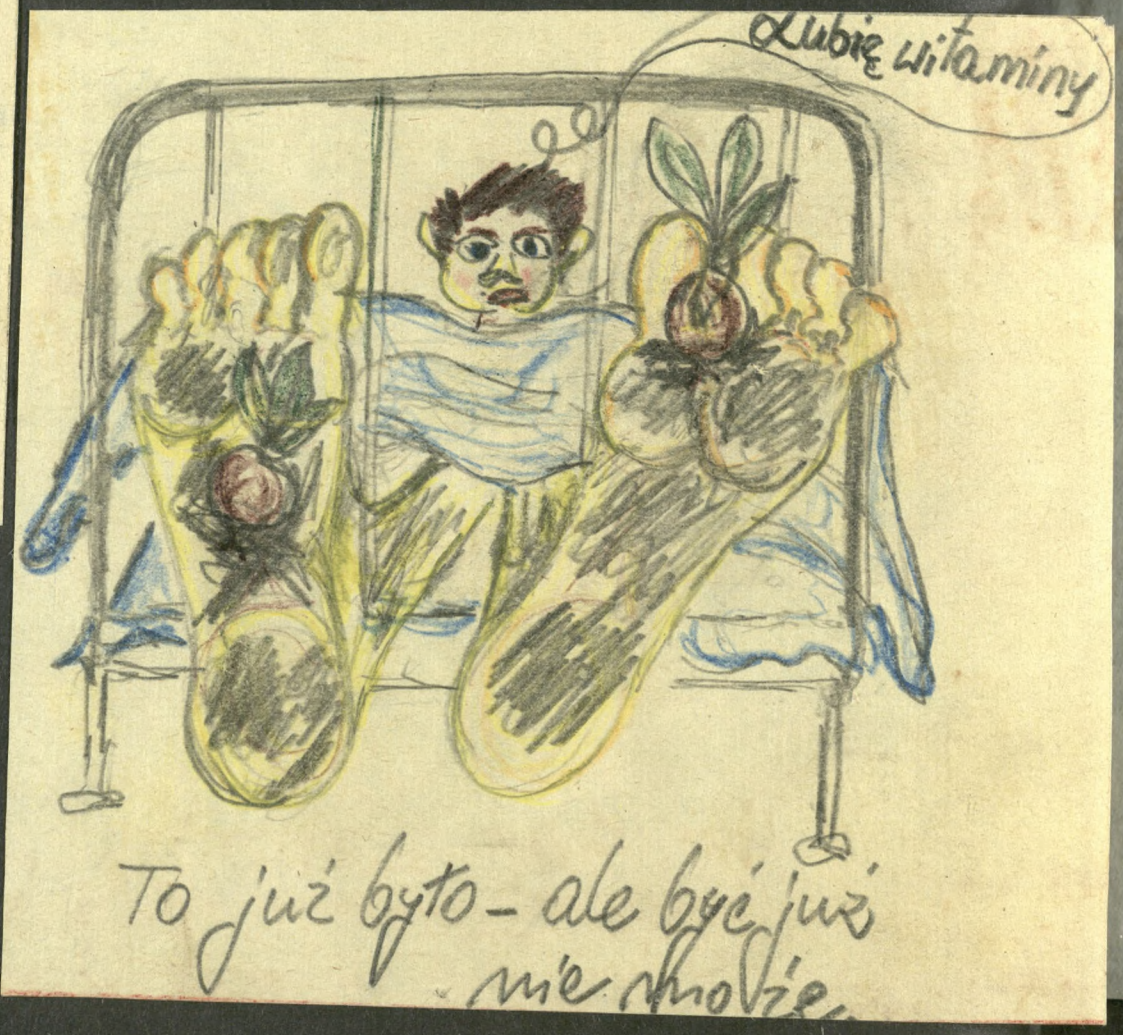 Lubię witaminy
To już było – ale być już
nie może